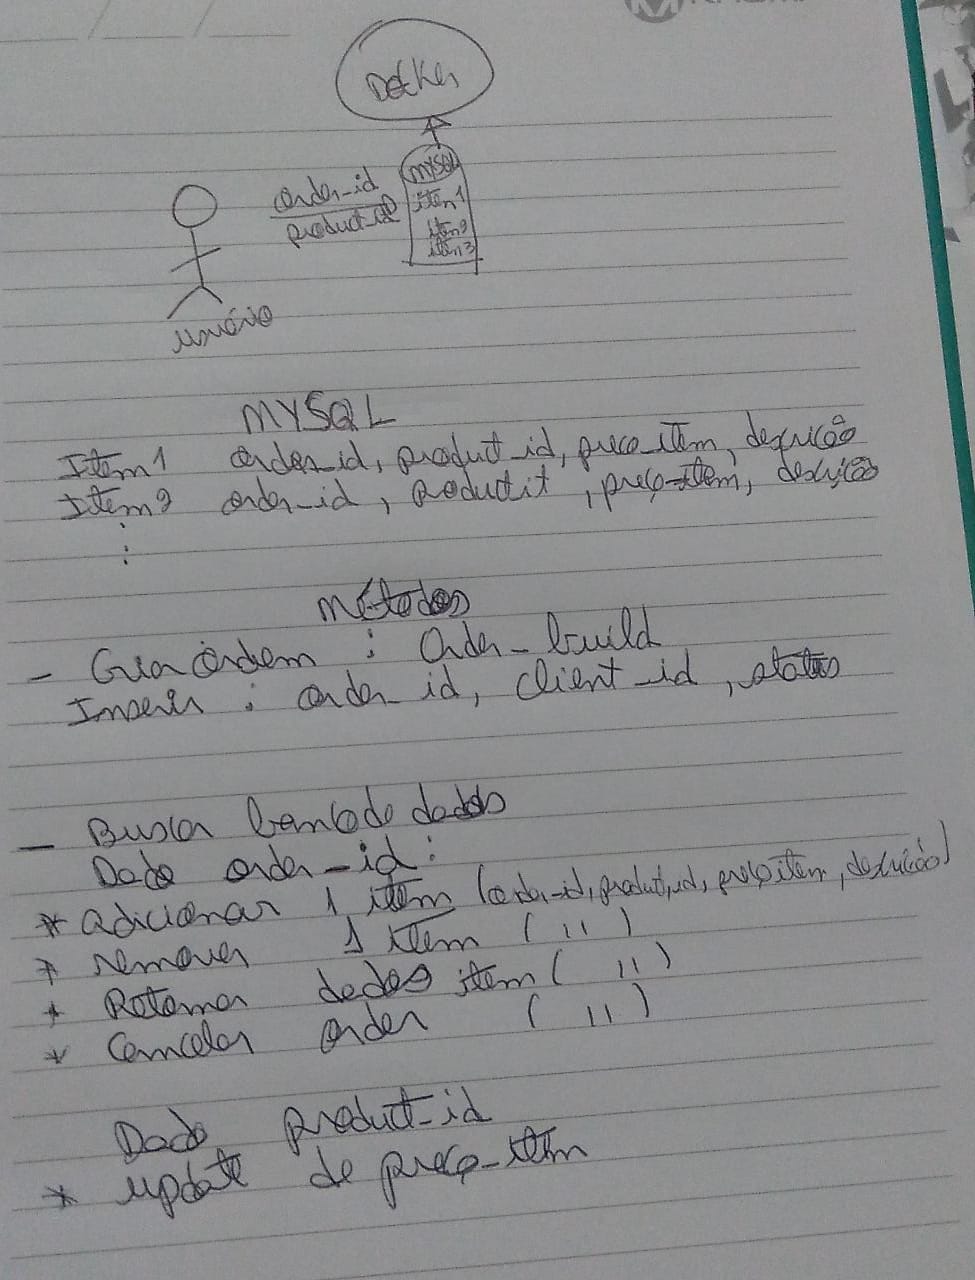 Docker
MYSQL
order_id
product_id
item1
item2
item3
usuário
MYSQL
Item1 order_id, product_id, preço_item, descrição
Item2 order_id, productit, preço_item, descrição
:
Métodos
- Cria ordem : Order_build
Inserir : order_id, client_id, status
- Buscar banco de dados
Dado order_id:
* adicionar 1 item (order_id, product_id, preço item, descrição)
* remover 1 item ( 11 )
* Retornar dados item ( 11 )
* Cancelar order ( 11 )
Dado product_id
* update de preço_item